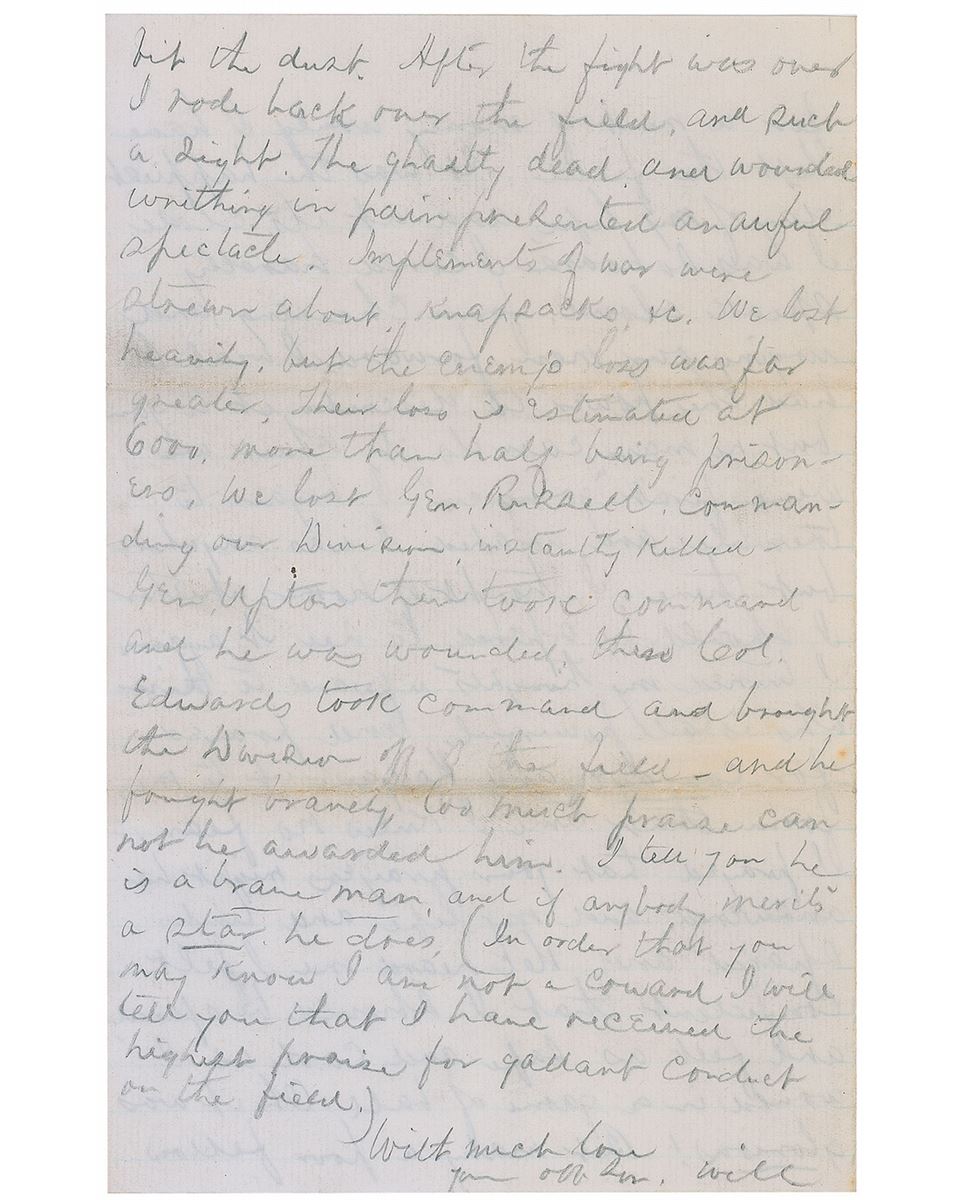 bit the dust. After the fight was over
I rode back over the field, and such
a sight. The ghastly dead and wounded
writhing in pain presented an awful
spectacle. Implements of war were
strewn about, Knapsacks, &c. We lost
heavily, but the enemy's loss was far
greater, Their loss is estimated at
6000, more than half being prison-
ers. We lost Gen. Russell, Comman-
ding our Division, instantly killed -
Gen, Upton then took command
and he was wounded, then Col.
Edwards took command and brought
the Division off of the field - and he
fought bravely, too much praise can
not be awarded him. I tell you he
is a brave man, and if anybody merits
a star he does, (In order that you
may know I am not a coward I will
tell you that I have received the
highest praise for gallant conduct
on the field.)
With much love
your son. Will